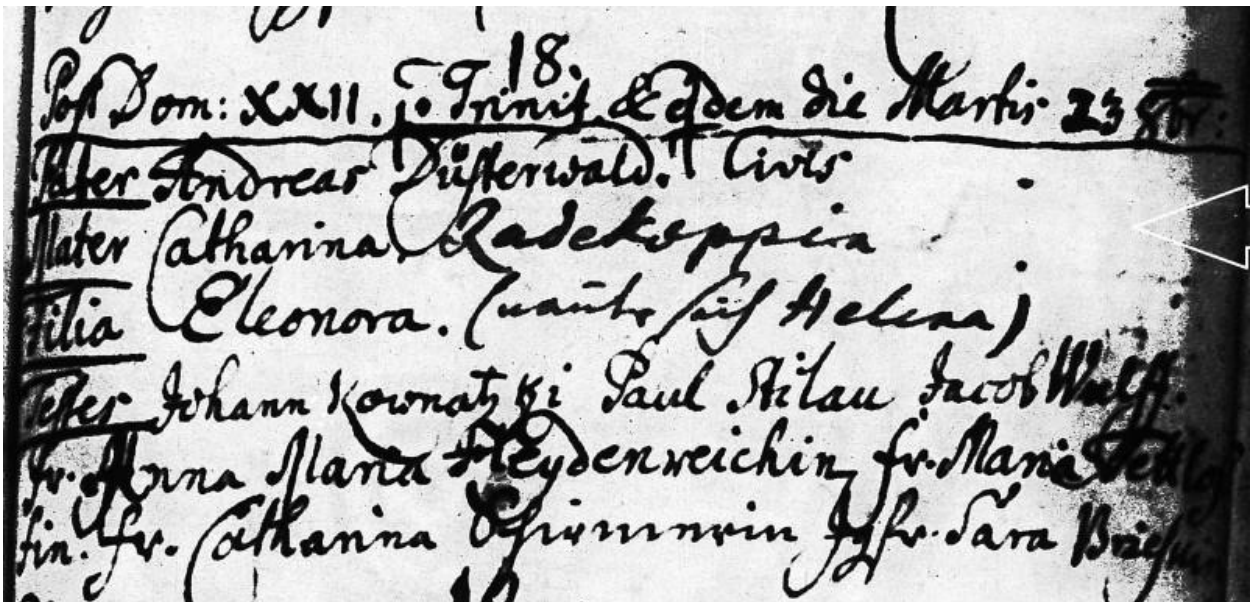 18.
Post Dom: XXII. p. Trinit. & eqdem die Martis 23 8br:
Pater Andreas Düsterwald. Civis
Mater Catharina Radekoppin
Filia Eleonora. (nante sich Helena)
Testes Johann Kownatzki Paul Stilau Jacob Wulff.
fr. Anna Maria Heydenreichin, fr. Maria Dettlof
fin. fr. Catharina Schirmerin Jgfr. Sara
19